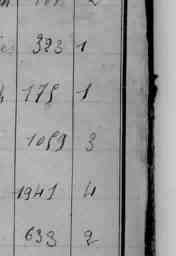 323 1
175 1
1099 3
1941 4
633 2